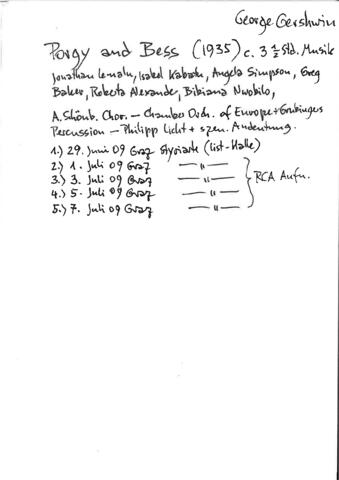 George Gershwin
Porgy and Bess (1935) c. 3 1/2 Std. Musik
Jonathan Lemalu, Isabel Kabatu, Angela Simpson, Greg
Baker, Roberta Alexander, Bibiana Nwobilo,
A. Schönb. Chor. – Chamber Orch. of Europe + Grubinger
Percussion – Philipp Licht + szen. Andeutung.
1.) 29. Juni 09 Graz Styriarte (List-Halle)
2.) 1. Juli 09 Graz — " —
3.) 3. Juli 09 Graz — " — RCA Aufn.
4.) 5. Juli 09 Graz — " —
5.) 7. Juli 09 Graz — " —